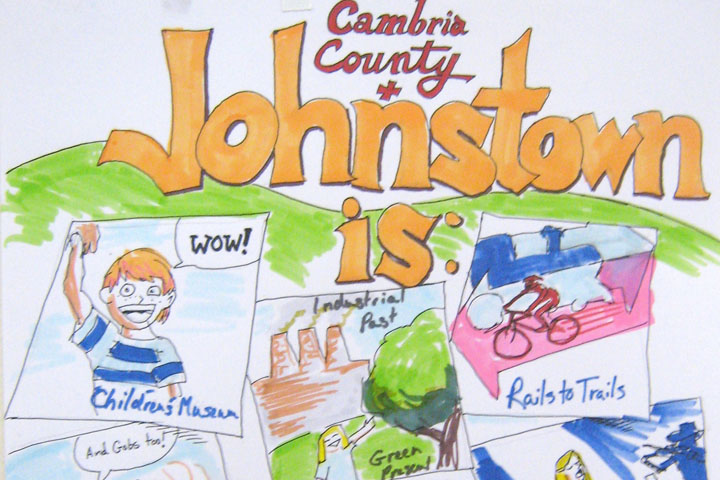 Cambria
County
+
Johnstown
is:
WOW!
Children's Museum
Industrial
Past
Green
Present
Rails to Trails
And Gobs too!